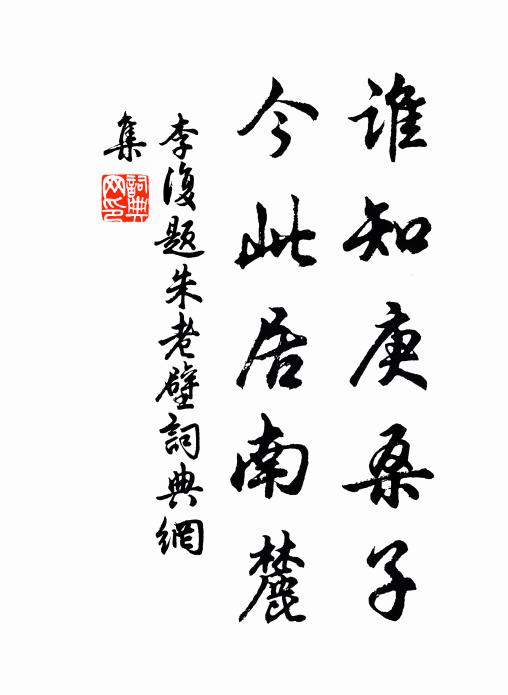 誰知庚桑子
今此居南麓
李復題朱老壁詞典網
集
詞典
网印